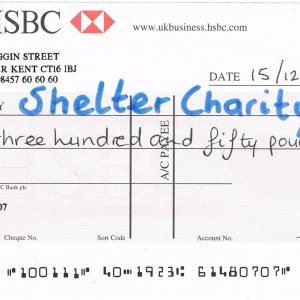 HSBC www.ukbusiness.hsbc.com
GGIN STREET
R KENT CT16 1BJ
08457 60 60 60
DATE 15/12
Y Shelter Charity
three hundred and fifty pou
A/C PAYEE
C Bank plc
07
Cheque No. Sort Code Account No.
"100111" 40"1923: 61480707"